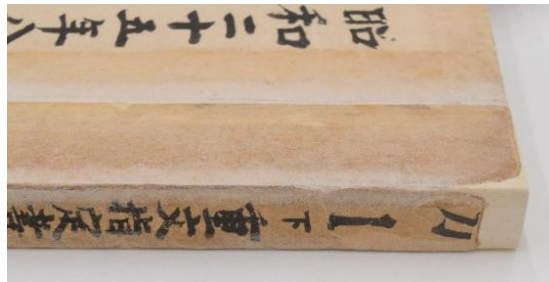 昭和二十五年八
刀 1 下 重文指定書